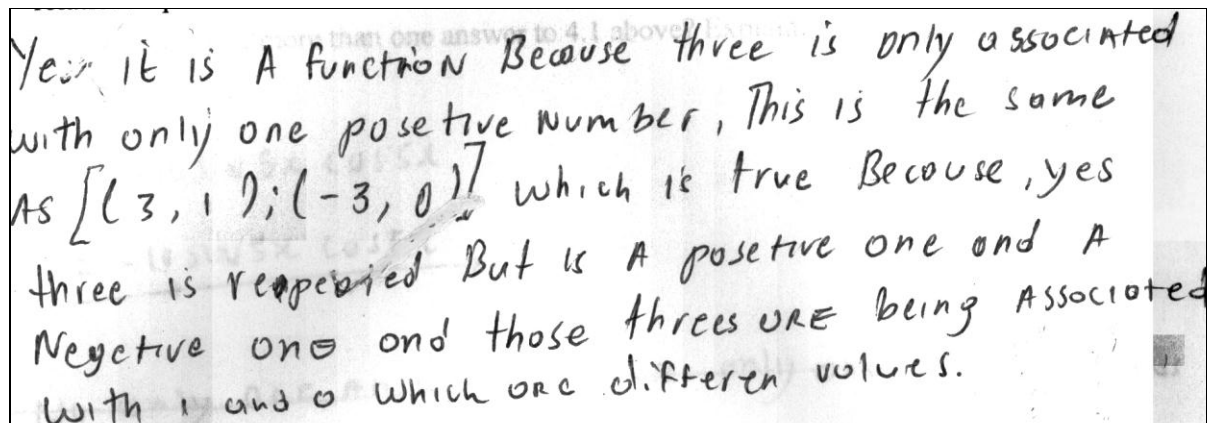 more than one answer to 4.1 above?
Yes it is A function Because three is only associated
with only one posetive Number, This is the same
As [(3, 1);(-3, 0)] which is true Becouse, yes
three is But is A posetive one and A
Negetive one and those threes URE being Associoted
with 1 and 0 which are differen volues.